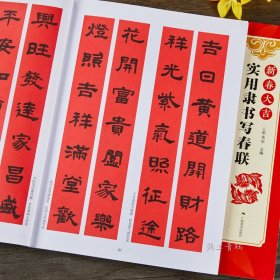 吉日黄道開財路
祥光紫氣照征途
花開富貴闔家樂
燈照吉祥滿堂歡
興旺發達家昌盛
平安
新春大吉
实用隶书写春联
主编